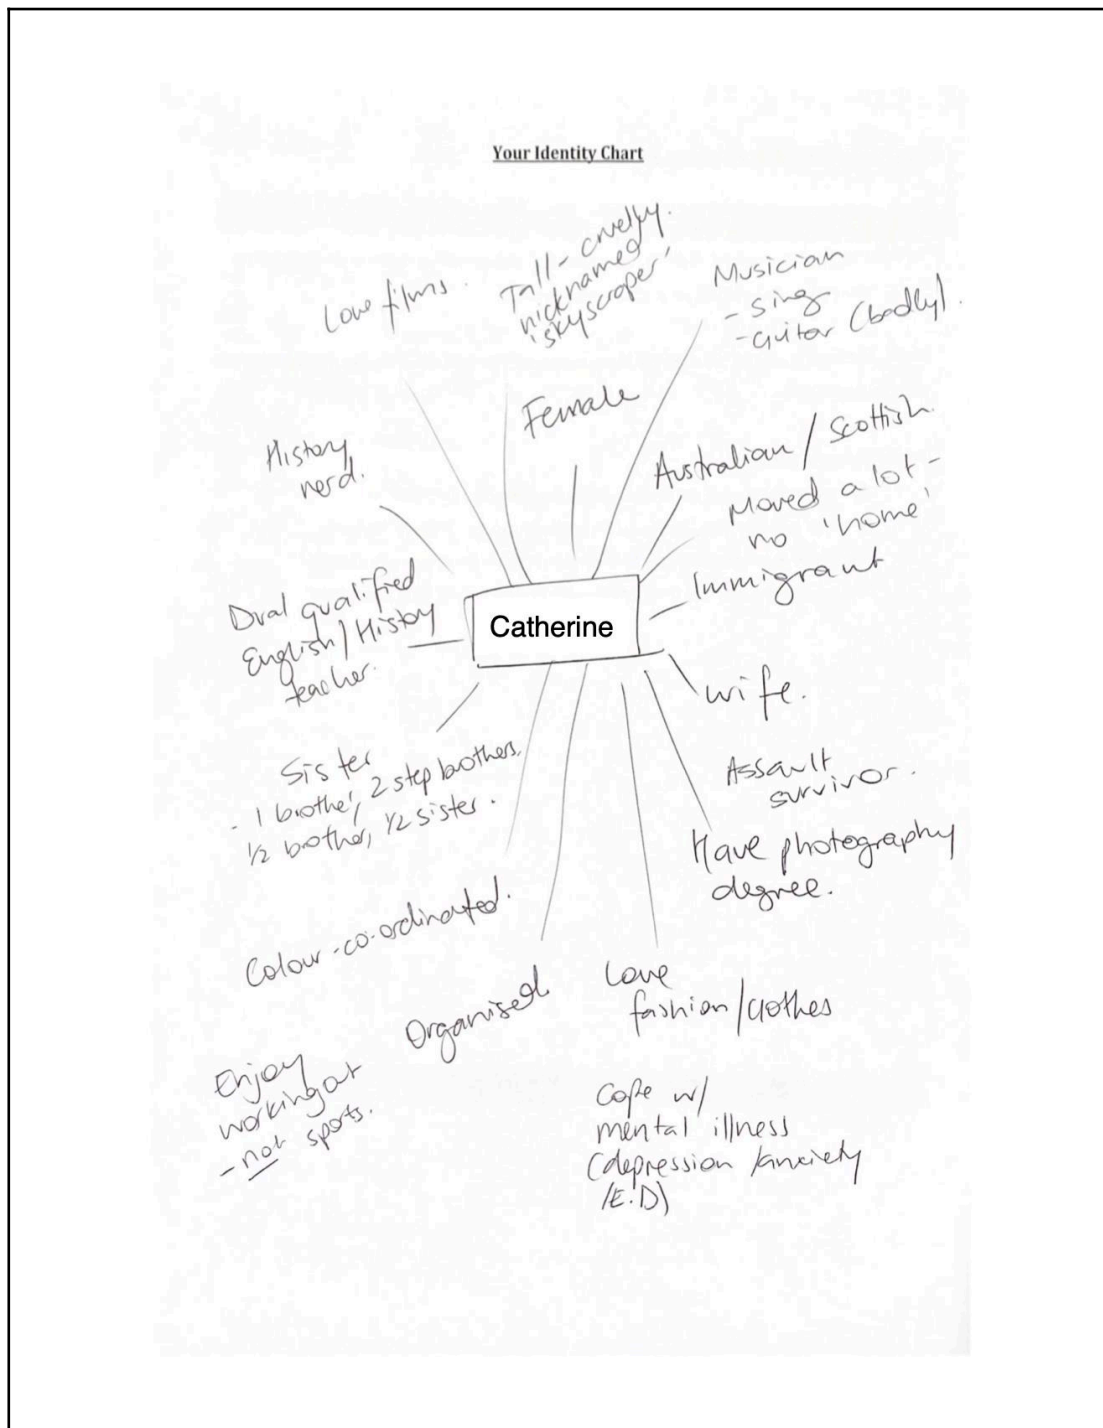 Your Identity Chart
Love films.
Tall - cruelly
nicknamed
'skyscraper'
Musician
- sing
- Guitar (badly).
Female
History
nerd.
Australian / Scottish
Moved a lot -
no 'home'
Immigrant
Dual qualified
English / History
teacher.
Catherine
wife.
Sister
- 1 brother, 2 step brothers,
1/2 brother, 1/2 sister.
Assault
survivor.
Have photography
degree.
Colour-co-ordinated.
Organised
Love
fashion/clothes
Enjoy
working out
- not sports.
Cope w/
mental illness
(depression /anxiety
/E.D)